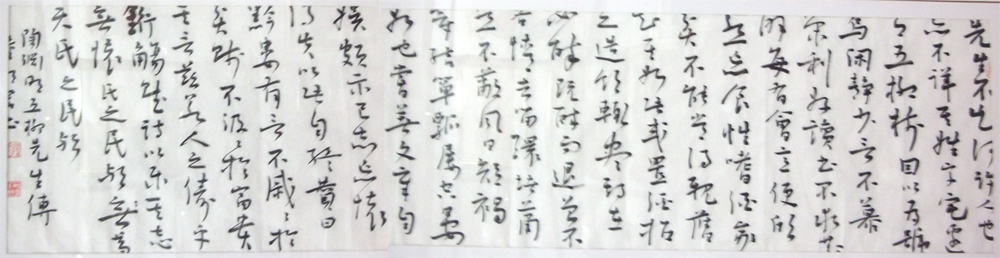 先生不知何許人也
亦不詳其姓字宅邊
有五柳樹因以為號
焉閑靜少言不慕
榮利好讀書不求甚
解每有會意便欣
然忘食性嗜酒家
貧不能常得親舊
知其如此或置酒招
之造飲輒盡期在
必醉既醉而退曾不
吝情去留環堵蕭
然不蔽風日短褐
穿結簞瓢屢空晏
如也嘗著文章自
娛頗示己志忘懷
得失以此自終贊曰
黔婁有言不戚戚於
貧賤不汲汲於富貴
其言茲若人之儔乎
銜觴賦詩以樂其志
無懷氏之民歟葛
天氏之民歟
陶淵明五柳先生傳